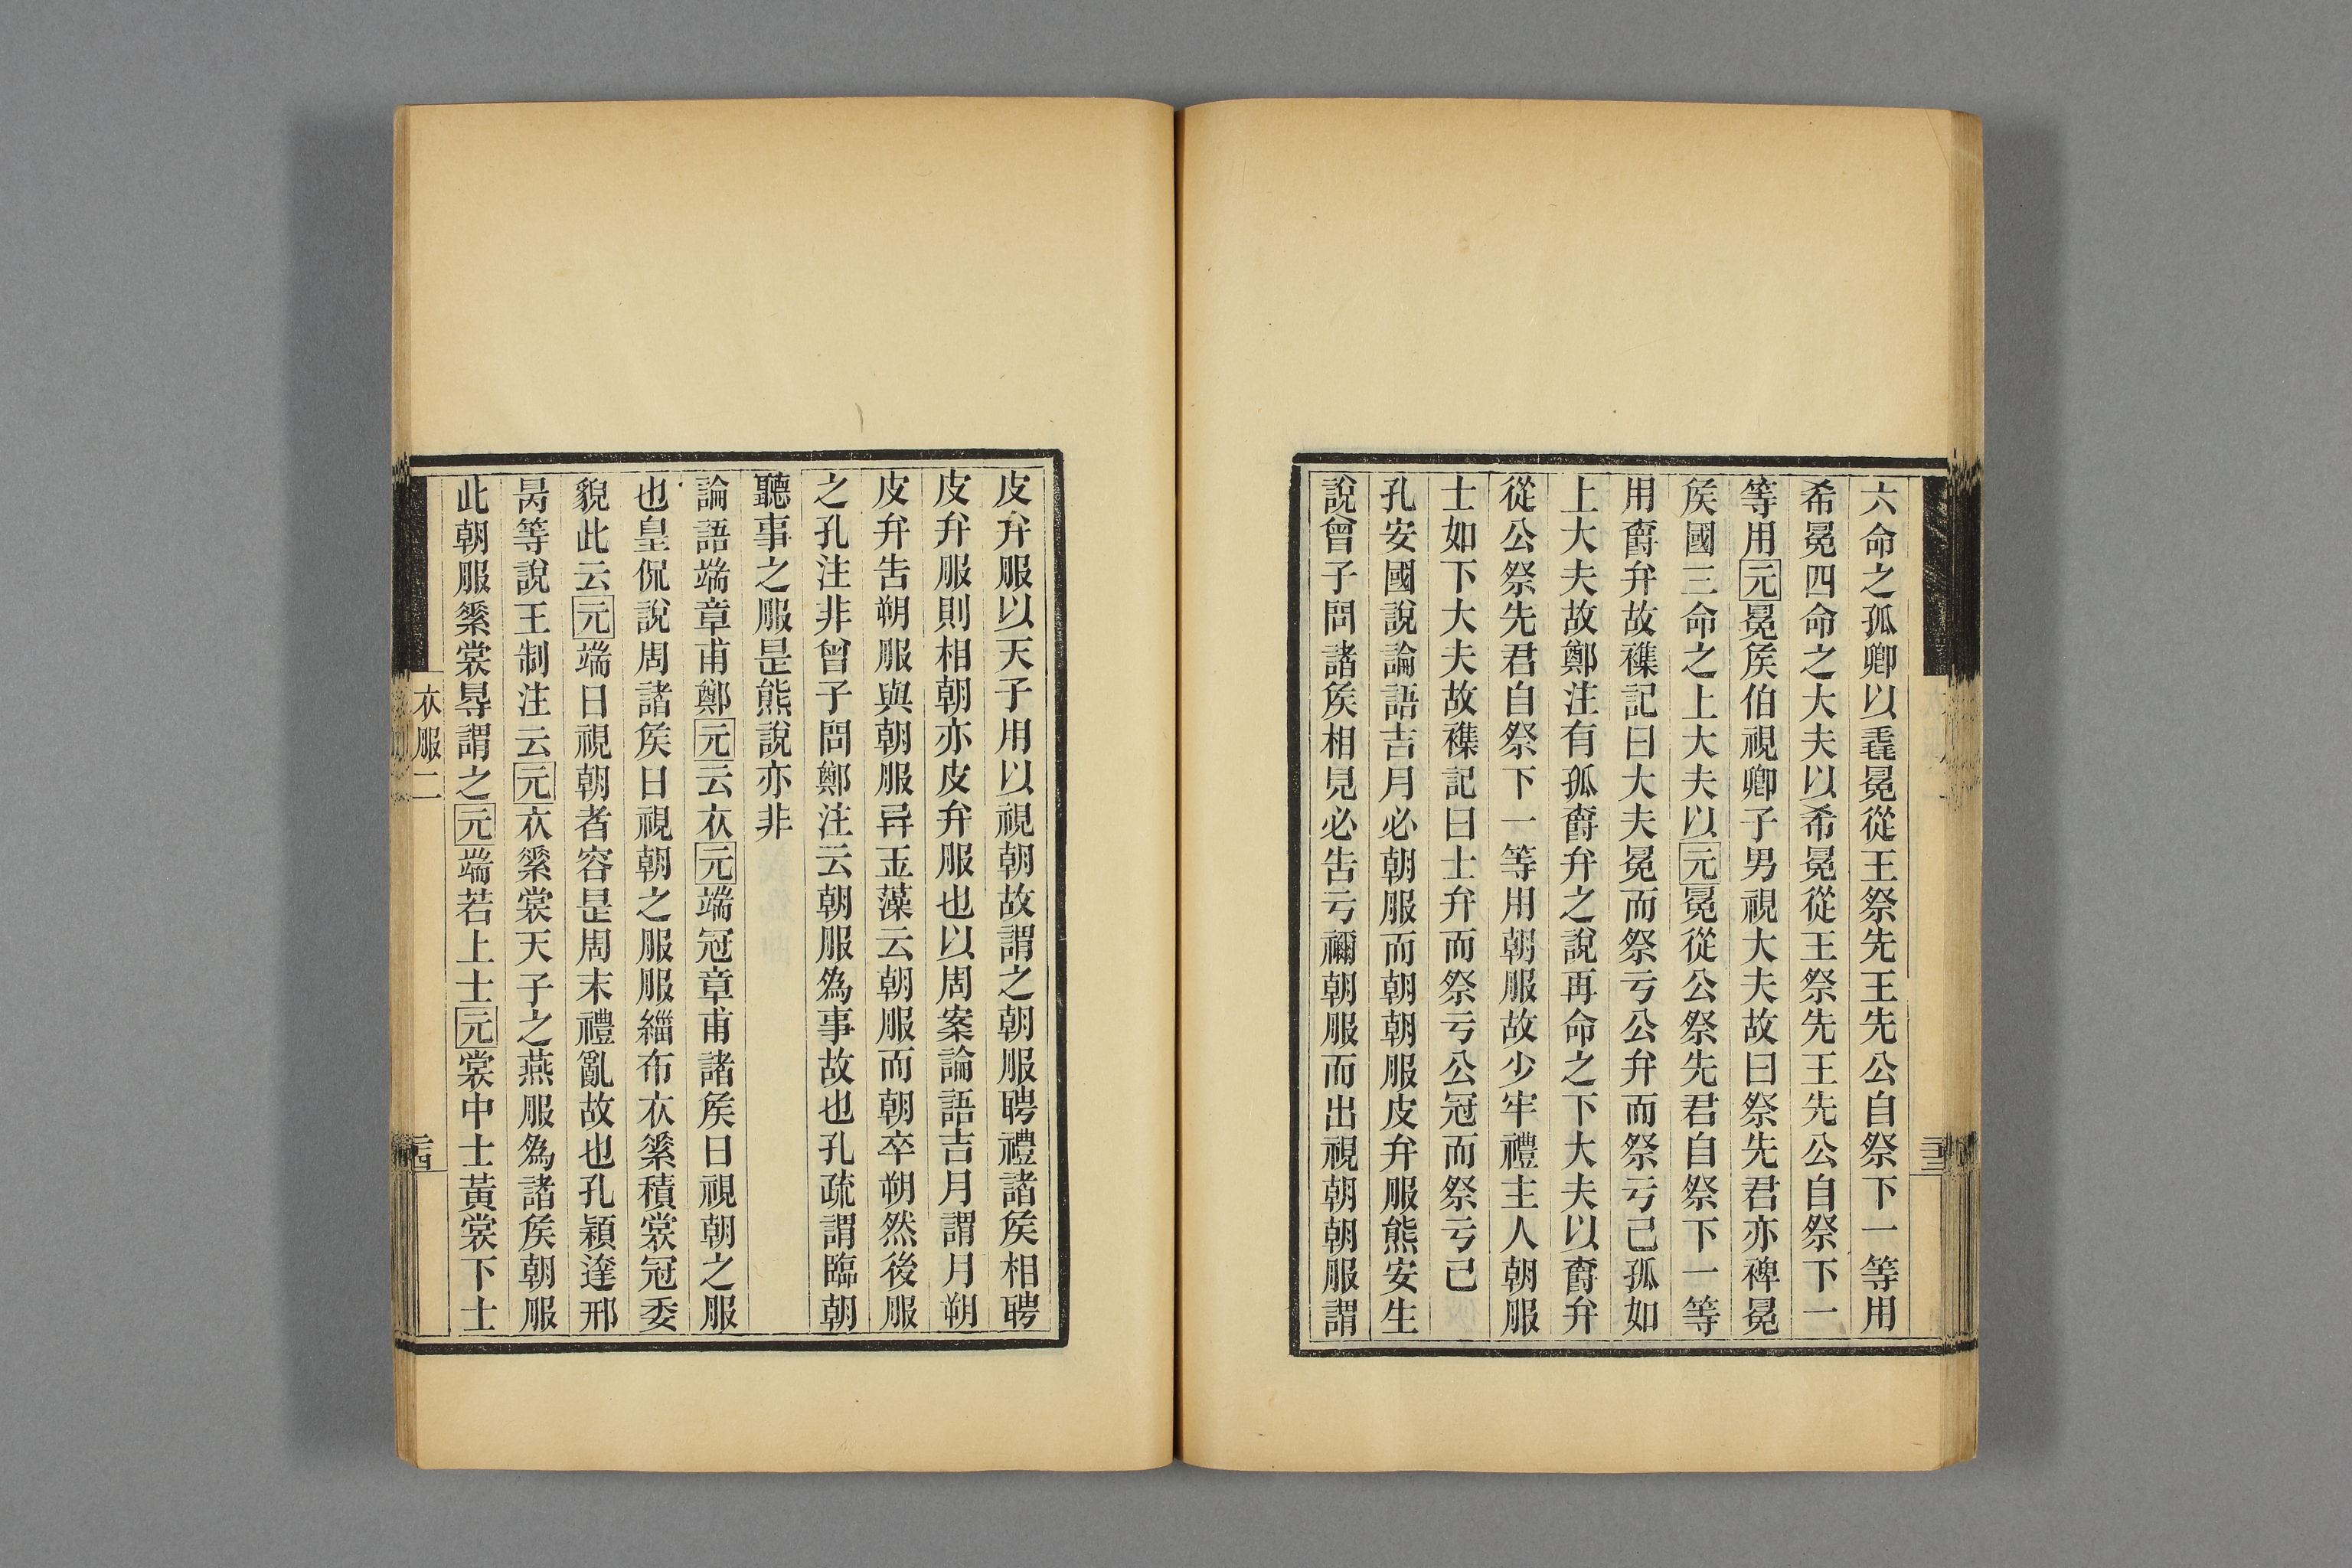 六命之孤卿以毳冕從王祭先王先公自祭下一等用
希冕四命之大夫以希冕從王祭先王先公自祭下一
等用元冕矦伯視卿子男視大夫故曰祭先君亦裨冕
矦國三命之上大夫以元冕從公祭先君自祭下一等
用爵弁故襍記曰大夫冕而祭亏公弁而祭亏己孤如
上大夫故鄭注有孤爵弁之說再命之下大夫以爵弁
從公祭先君自祭下一等用朝服故少牢禮主人朝服
士如下大夫故襍記曰士弁而祭亏公冠而祭亏己
孔安國說論語吉月必朝服而朝朝服皮弁服熊安生
說曾子問諸矦相見必告亏禰朝服而出視朝朝服謂
皮弁服以天子用以視朝故謂之朝服聘禮諸矦相聘
皮弁服則相朝亦皮弁服也以周案論語吉月謂月朔
皮弁告朔服與朝服异玉藻云朝服而朝卒朔然後服
之孔注非曾子問鄭注云朝服為事故也孔疏謂臨朝
聽事之服是熊說亦非
論語端章甫鄭元云衣元端冠章甫諸矦日視朝之服
也皇侃說周諸矦日視朝之服服緇布衣素積裳冠委
貌此云元端日視朝者容是周末禮亂故也孔穎達邢
昺等說王制注云元衣素裳天子之燕服為諸矦朝服
此朝服素裳㝵謂之元端若上士元裳中士黃裳下士
衣服二